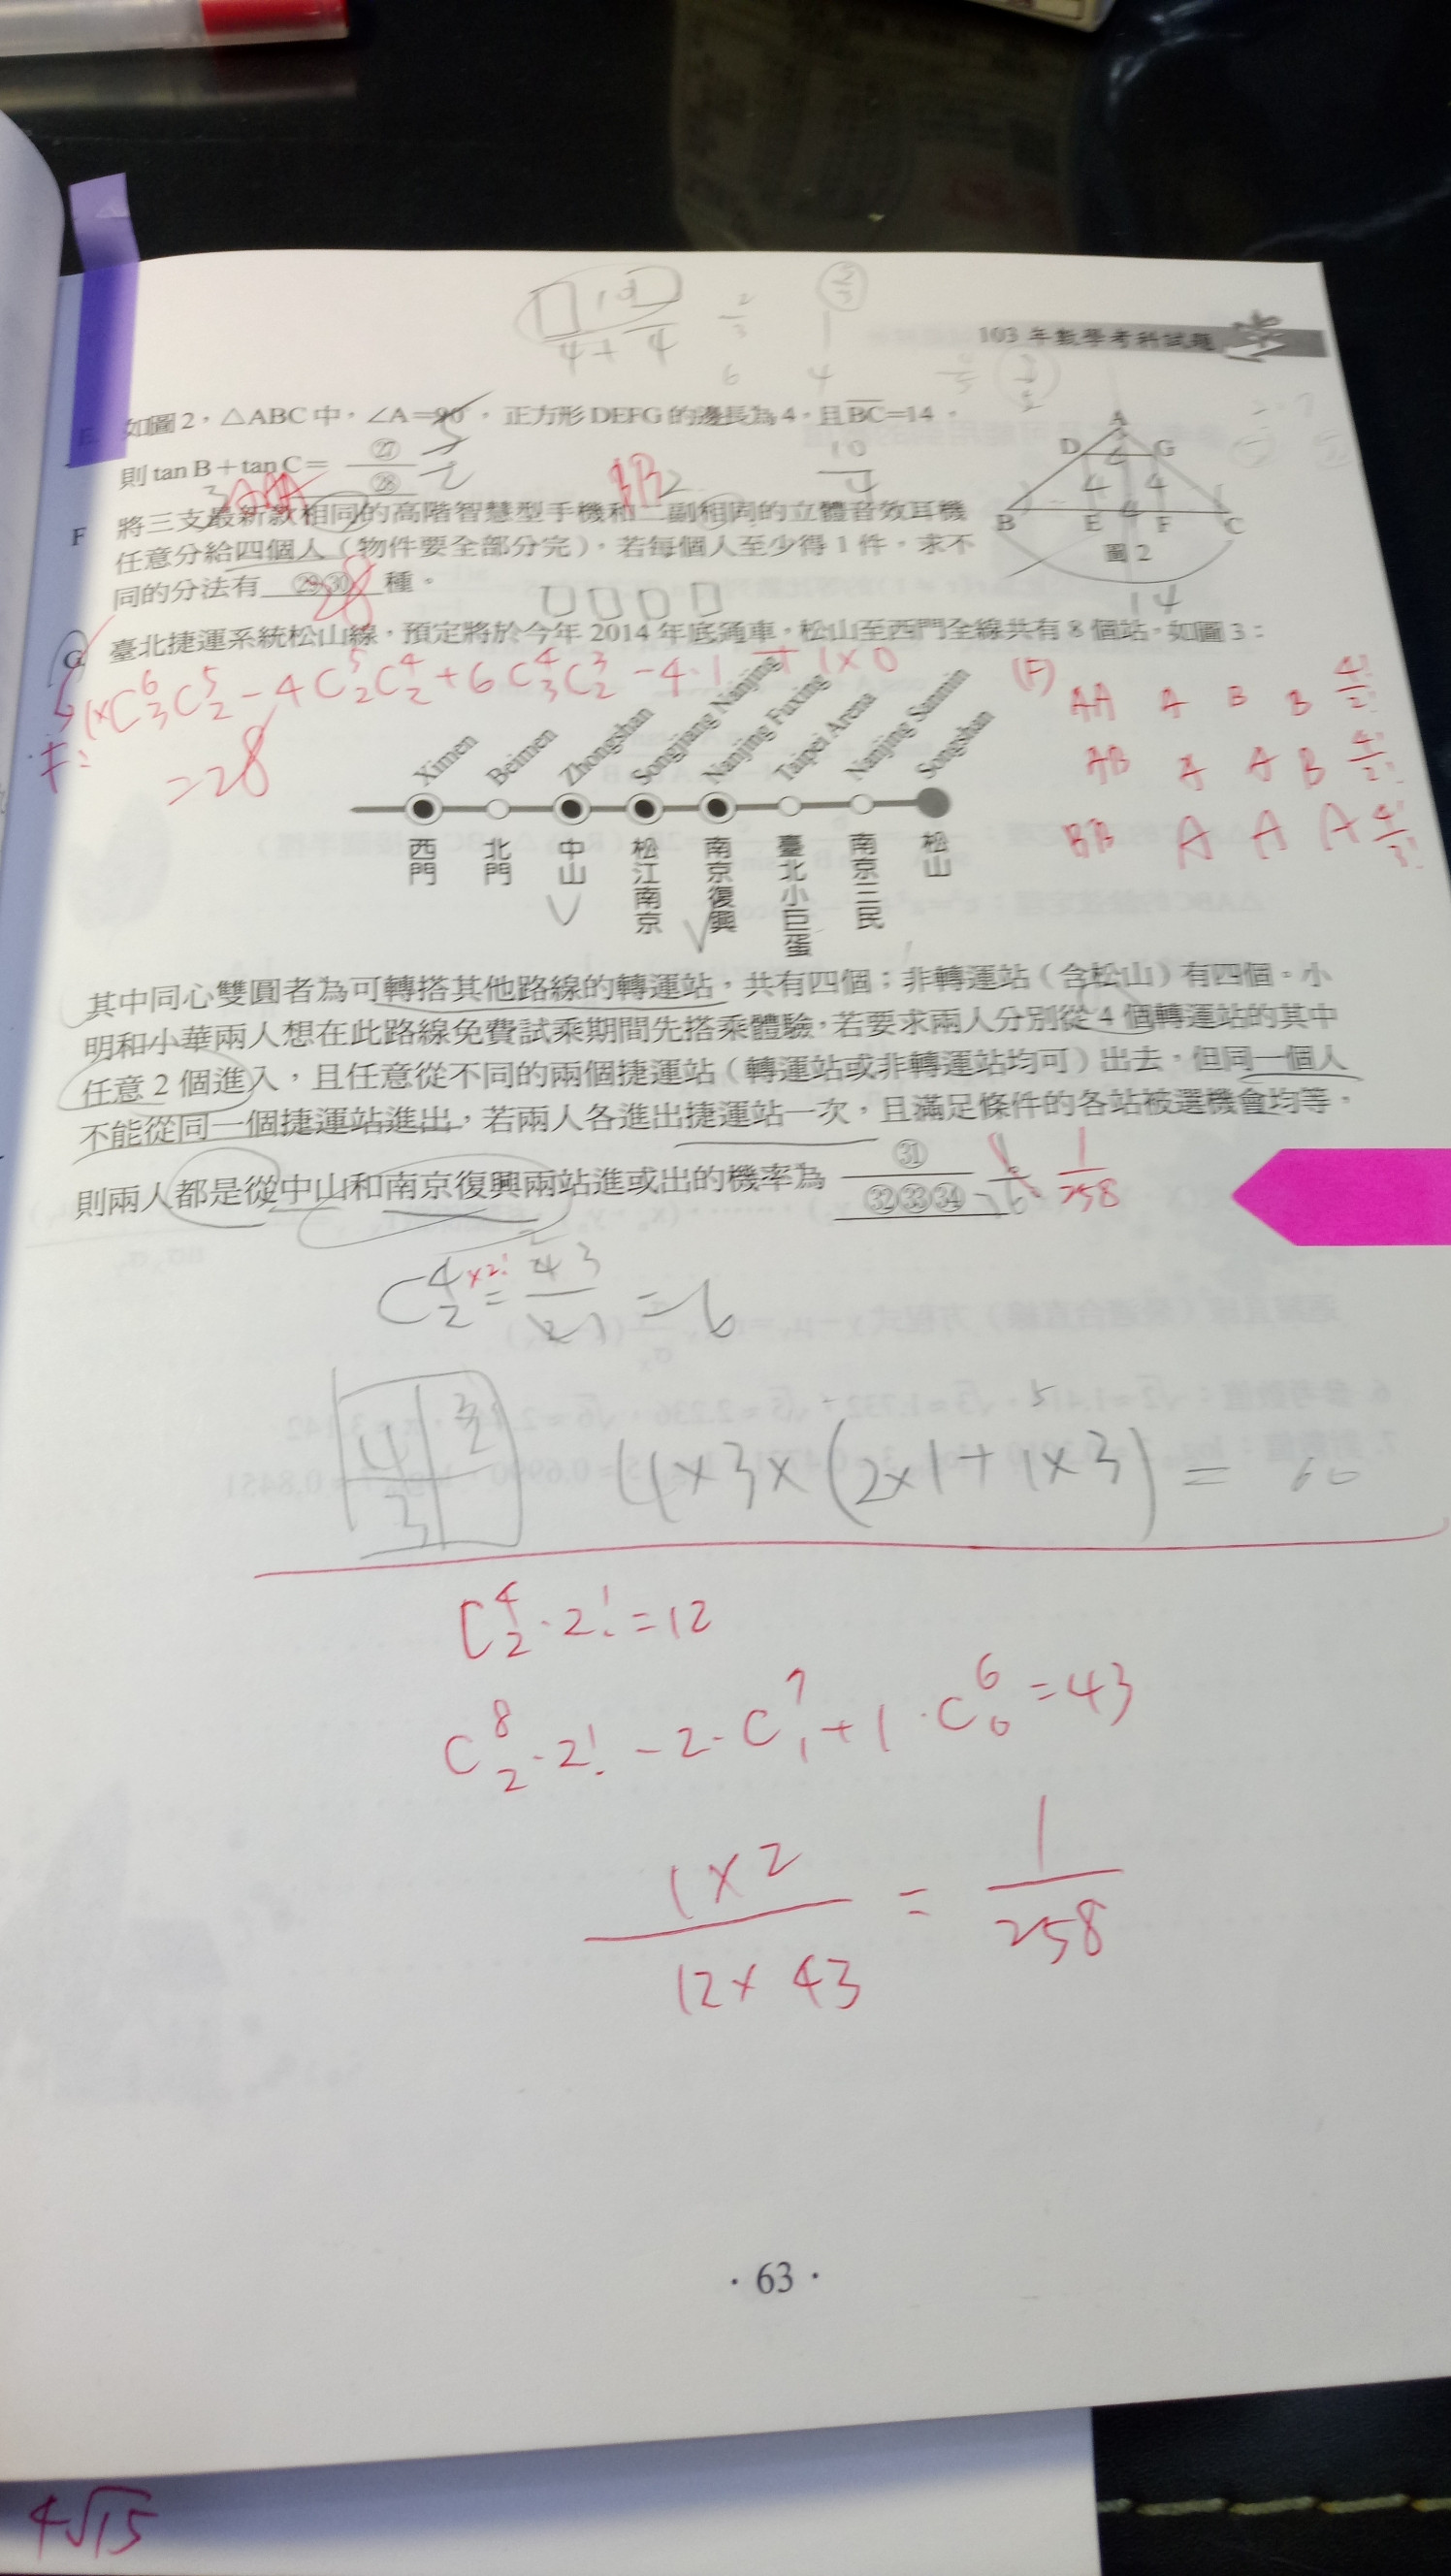 103 年數學考科試題
如圖 2，△ABC 中，∠A=90°，正方形 DEFG 的邊長為 4，且 BC=14，
則 tan B + tan C = ㉗ 5
㉘ 2
A
D G
4
4 4
B E 4 F C
圖 2
14
F 將三支最新款相同的高階智慧型手機和二副相同的立體音效耳機
任意分給四個人（物件要全部分完），若每個人至少得 1 件，求不
同的分法有 ㉙㉚ 種。
28
G 臺北捷運系統松山線，預定將於今年 2014 年底通車，松山至西門全線共有 8 個站，如圖 3：
=28
(F)
AA A B B 4!/2!
AB A A B 4!/2!
BB A A A 4!/3!
Ximen Beimen Zhongshan Songjiang Nanjing Nanjing Fuxing Taipei Arena Nanjing Sanmin Songshan
西門 北門 中山 松江南京 南京復興 臺北小巨蛋 南京三民 松山
其中同心雙圓者為可轉搭其他路線的轉運站，共有四個；非轉運站（含松山）有四個。小
明和小華兩人想在此路線免費試乘期間先搭乘體驗，若要求兩人分別從 4 個轉運站的其中
任意 2 個進入，且任意從不同的兩個捷運站（轉運站或非轉運站均可）出去，但同一個人
不能從同一個捷運站進出，若兩人各進出捷運站一次，且滿足條件的各站被選機會均等，
則兩人都是從中山和南京復興兩站進或出的機率為 ㉛
㉜㉝㉞
1/258
4×3×(2×1+1×3) = 60
C⁴₂·2!=12
C⁸₂·2!-2·C⁷₁+1·C⁶₀=43
1×2
12×43
= 1/258
·63·
4√15